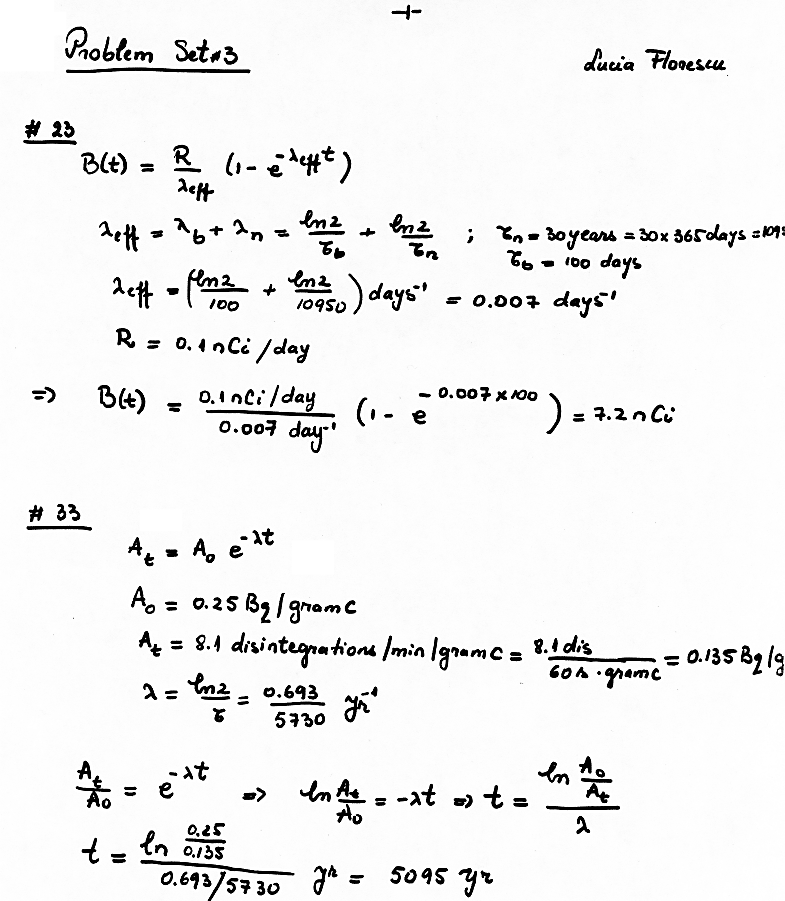 -1-
Problem Set #3
Lucia Florescu
# 23
B(t) = R/λeff (1 - e^(-λeff t))
λeff = λb + λn = ln2/τb + ln2/τn ; τn = 30 years = 30 x 365 days = 1095
τb = 100 days
λeff = (ln2/100 + ln2/10950) days⁻¹ = 0.007 days⁻¹
R = 0.1 nCi/day
=> B(t) = 0.1 nCi/day / 0.007 day⁻¹ (1 - e^(-0.007 x 100)) = 7.2 nCi
# 33
A_t = A_0 e^(-λt)
A_0 = 0.25 Bq/gram C
A_t = 8.1 disintegrations/min/gram C = 8.1 dis / 60 s · gram C = 0.135 Bq/g
λ = ln2/τ = 0.693/5730 yr⁻¹
A_t/A_0 = e^(-λt) => ln A_t/A_0 = -λt => t = ln A_0/A_t / λ
t = ln 0.25/0.135 / 0.693/5730 yr = 5095 yr